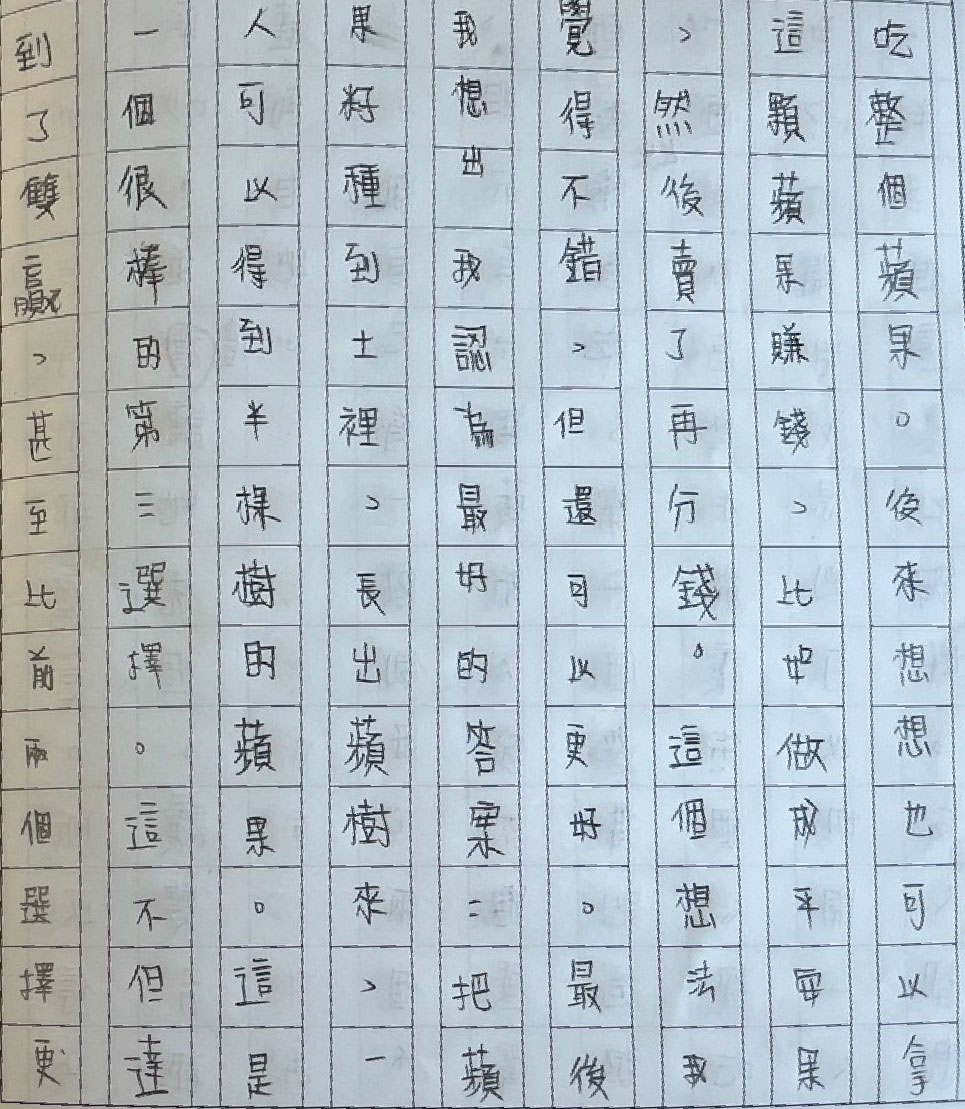 吃整個蘋果。後來想想也可以拿
這顆蘋果賺錢，比如做成平安果
，然後賣了再分錢。這個想法我
覺得不錯，但還可以更好。最後
我想出我認為最好的答案：把蘋
果籽種到土裡，長出蘋果樹來，一
人可以得到半棵樹的蘋果。這是
一個很棒的第三選擇。這不但達
到了雙贏，甚至比前兩個選擇更